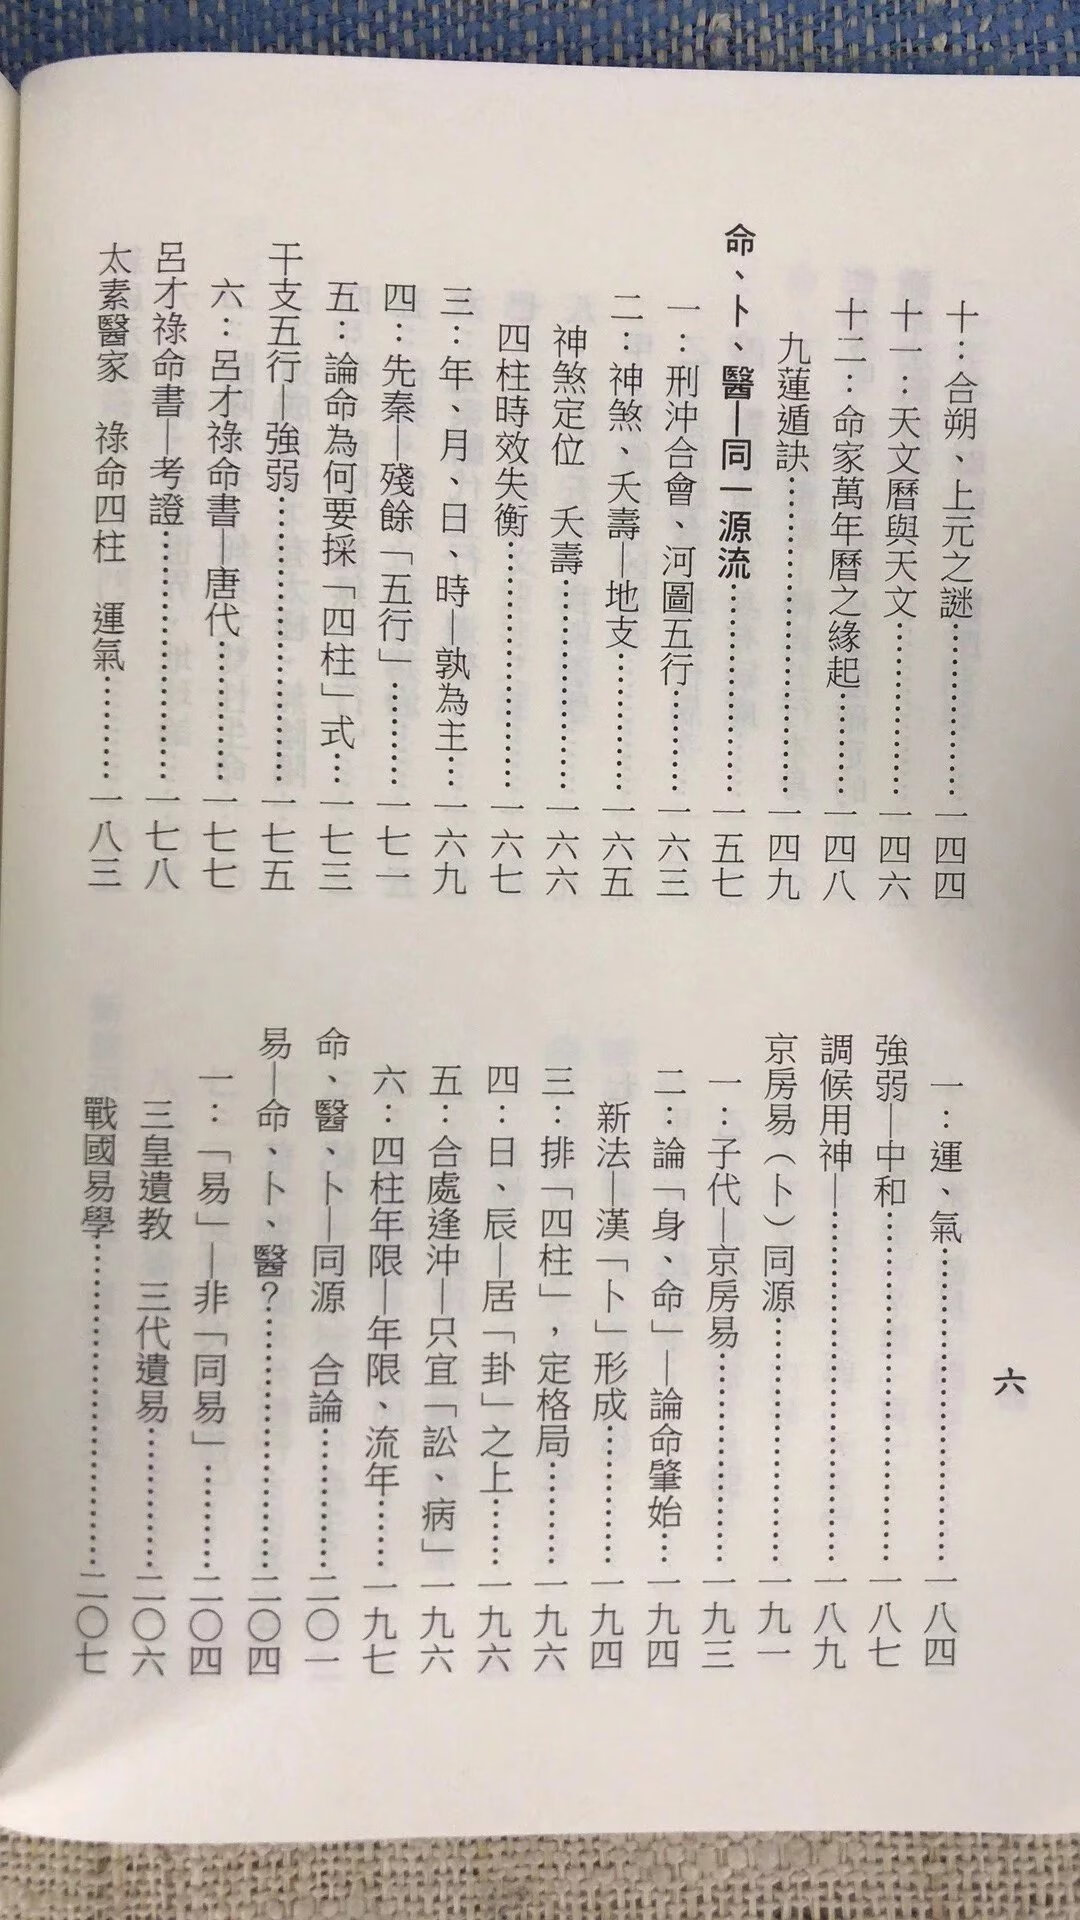 十：合朔、上元之謎……………一四四
十一：天文曆與天文……………一四六
十二：命家萬年曆之緣起………一四八
九蓮遁訣…………………………一四九
命、卜、醫—同一源流…………一五七
一：刑沖合會、河圖五行………一六三
二：神煞、夭壽—地支…………一六五
神煞定位　夭壽…………………一六六
四柱時效失衡……………………一六七
三：年、月、日、時—孰為主…一六九
四：先秦—殘餘「五行」………一七一
五：論命為何要採「四柱」式…一七三
干支五行—強弱…………………一七五
六：呂才祿命書—唐代…………一七七
呂才祿命書—考證………………一七八
太素醫家　祿命四柱　運氣……一八三
一：運、氣………………………一八四
強弱—中和………………………一八七
調候用神—………………………一八九
京房易（卜）同源………………一九一
一：子代—京房易………………一九三
二：論「身、命」—論命肇始…一九四
新法—漢「卜」形成……………一九四
三：排「四柱」，定格局………一九六
四：日、辰—居「卦」之上……一九六
五：合處逢沖—只宜「訟、病」一九六
六：四柱年限—年限、流年……一九七
命、醫、卜—同源　合論………二〇一
易—命、卜、醫？………………二〇四
一：「易」—非「同易」………二〇四
三皇遺教　三代遺易……………二〇六
戰國易學…………………………二〇七
六